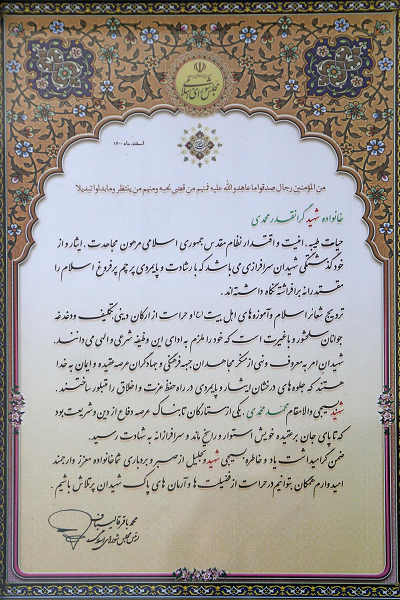 مجلس شورای اسلامی
اسفند ماه ۱۴۰۰
مِن المؤمنین رجال صدقوا ما عاهدو الله علیه فمنهم من قضی نحبه ومنهم من ینتظر وما بدلوا تبدیلا
خانواده شهید گرانقدر محمدی
حیات طیبه، امنیت و اقتدار نظام مقدس جمهوری اسلامی مرهون مجاهدت، ایثار و از
خودگذشتگی شهیدان سرافرازی می باشد که با رشادت و پایمردی پرچم پرفروغ اسلام را
مقتدرانه برافراشته نگاه داشته‌اند.
ترویج شعائر اسلام و آموزه‌های اهل بیت (ع) و حراست از ارکان دینی، تکلیف و دغدغه
جوانان سلحشور و با غیرت است که خود را ملزم به ادای این وظیفه شرعی و الهی می دانند.
شهیدان امر به معروف و نهی از منکر مجاهدان جبهه فرهنگی و جهادگران عرصه عقیده و ایمان به خدا
هستند که جلوه های درخشان ایثار و پایمردی در راه حفظ عزت و اخلاق را متبلور ساختند.
شهید بسیجی والامقام محمد محمدی، یکی از ستارگان تابناک عرصه دفاع از دین و شریعت بود
که تا پای جان بر عقیده خویش استوار و راسخ ماند و سرافرازانه به شهادت رسید.
ضمن گرامیداشت یاد و خاطره بسیجی شهید و تجلیل از صبر و بردباری شما خانواده معزز و ارجمند
امیدوارم همگان بتوانیم در حراست از فضیلت ها و آرمان های پاک شهیدان پرتلاش باشیم.
محمد باقر قالیباف
رئیس مجلس شورای اسلامی